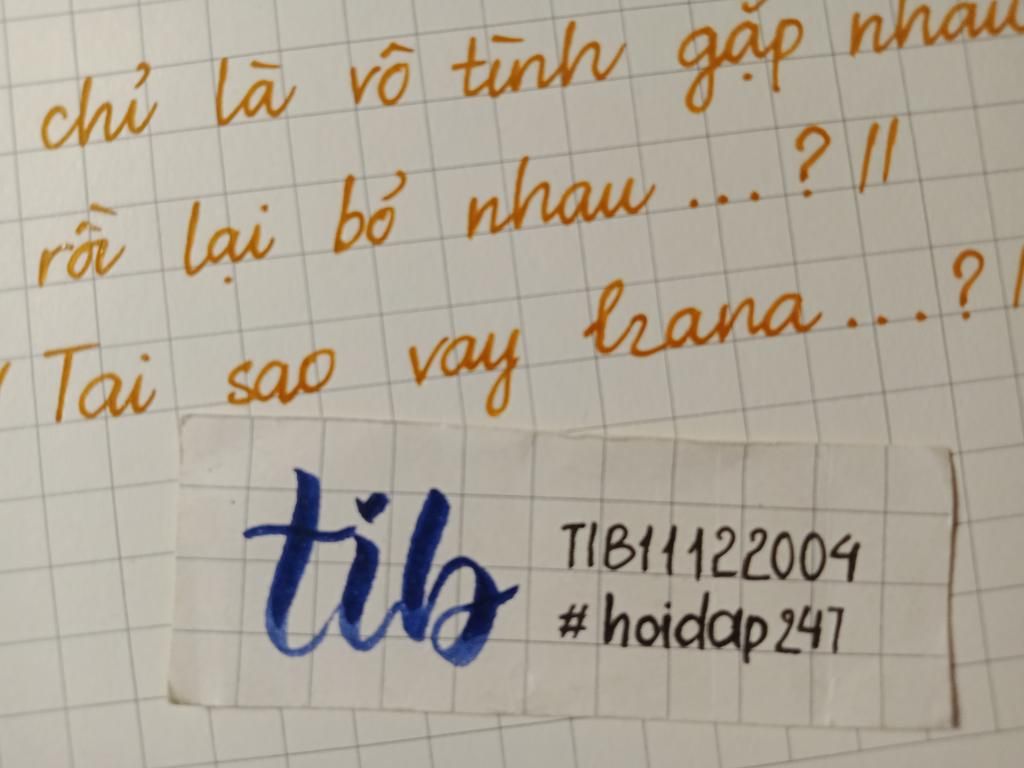 chỉ là vô tình gặp nhau
rồi lại bỏ nhau ...? //
Tai sao vay trana ...? /
tib
TIB11122004
#hoidap247